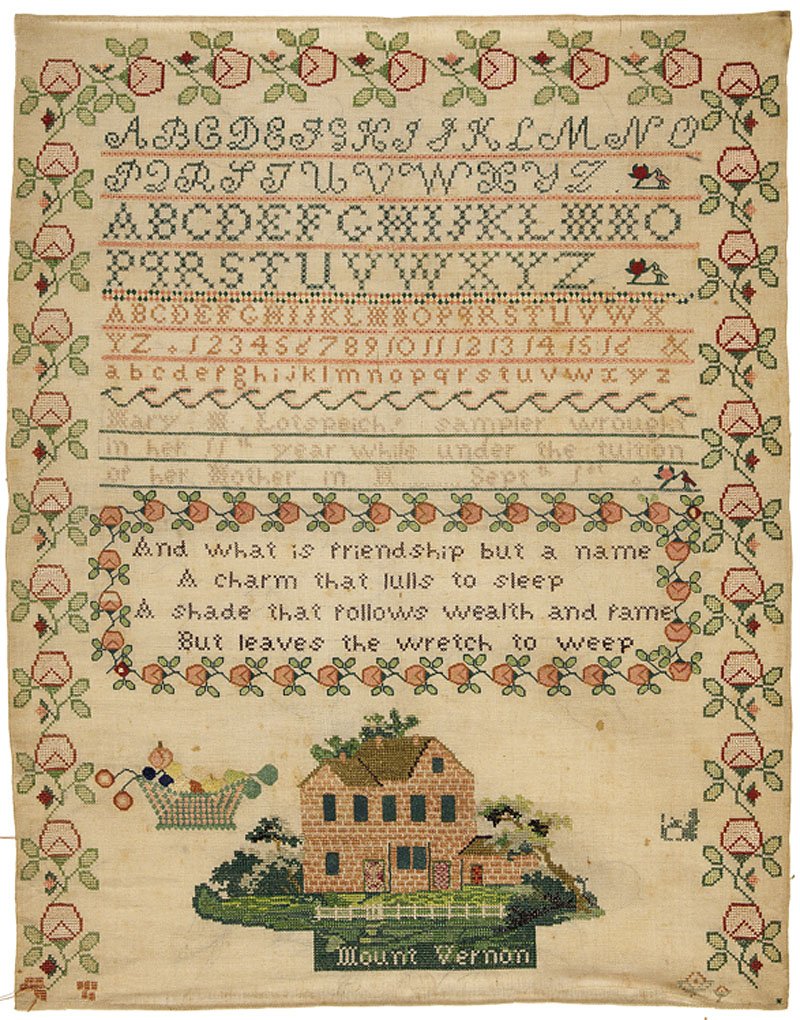 A B C D E F G H I J K L M N O
P Q R S T U V W X Y Z
A B C D E F G H I J K L M N O
P Q R S T U V W X Y Z
A B C D E F G H I J K L M N O P Q R S T U V W X
Y Z 1 2 3 4 5 6 7 8 9 10 11 12 13 14 15 16 &
a b c d e f g h i j k l m n o p q r s t u v w x y z
Mary M. Lotspeich's sampler wrought
in her 11th year while under the tuition
of her Mother in Sept 1st
And what is friendship but a name
A charm that lulls to sleep
A shade that follows wealth and fame
But leaves the wretch to weep
Mount Vernon